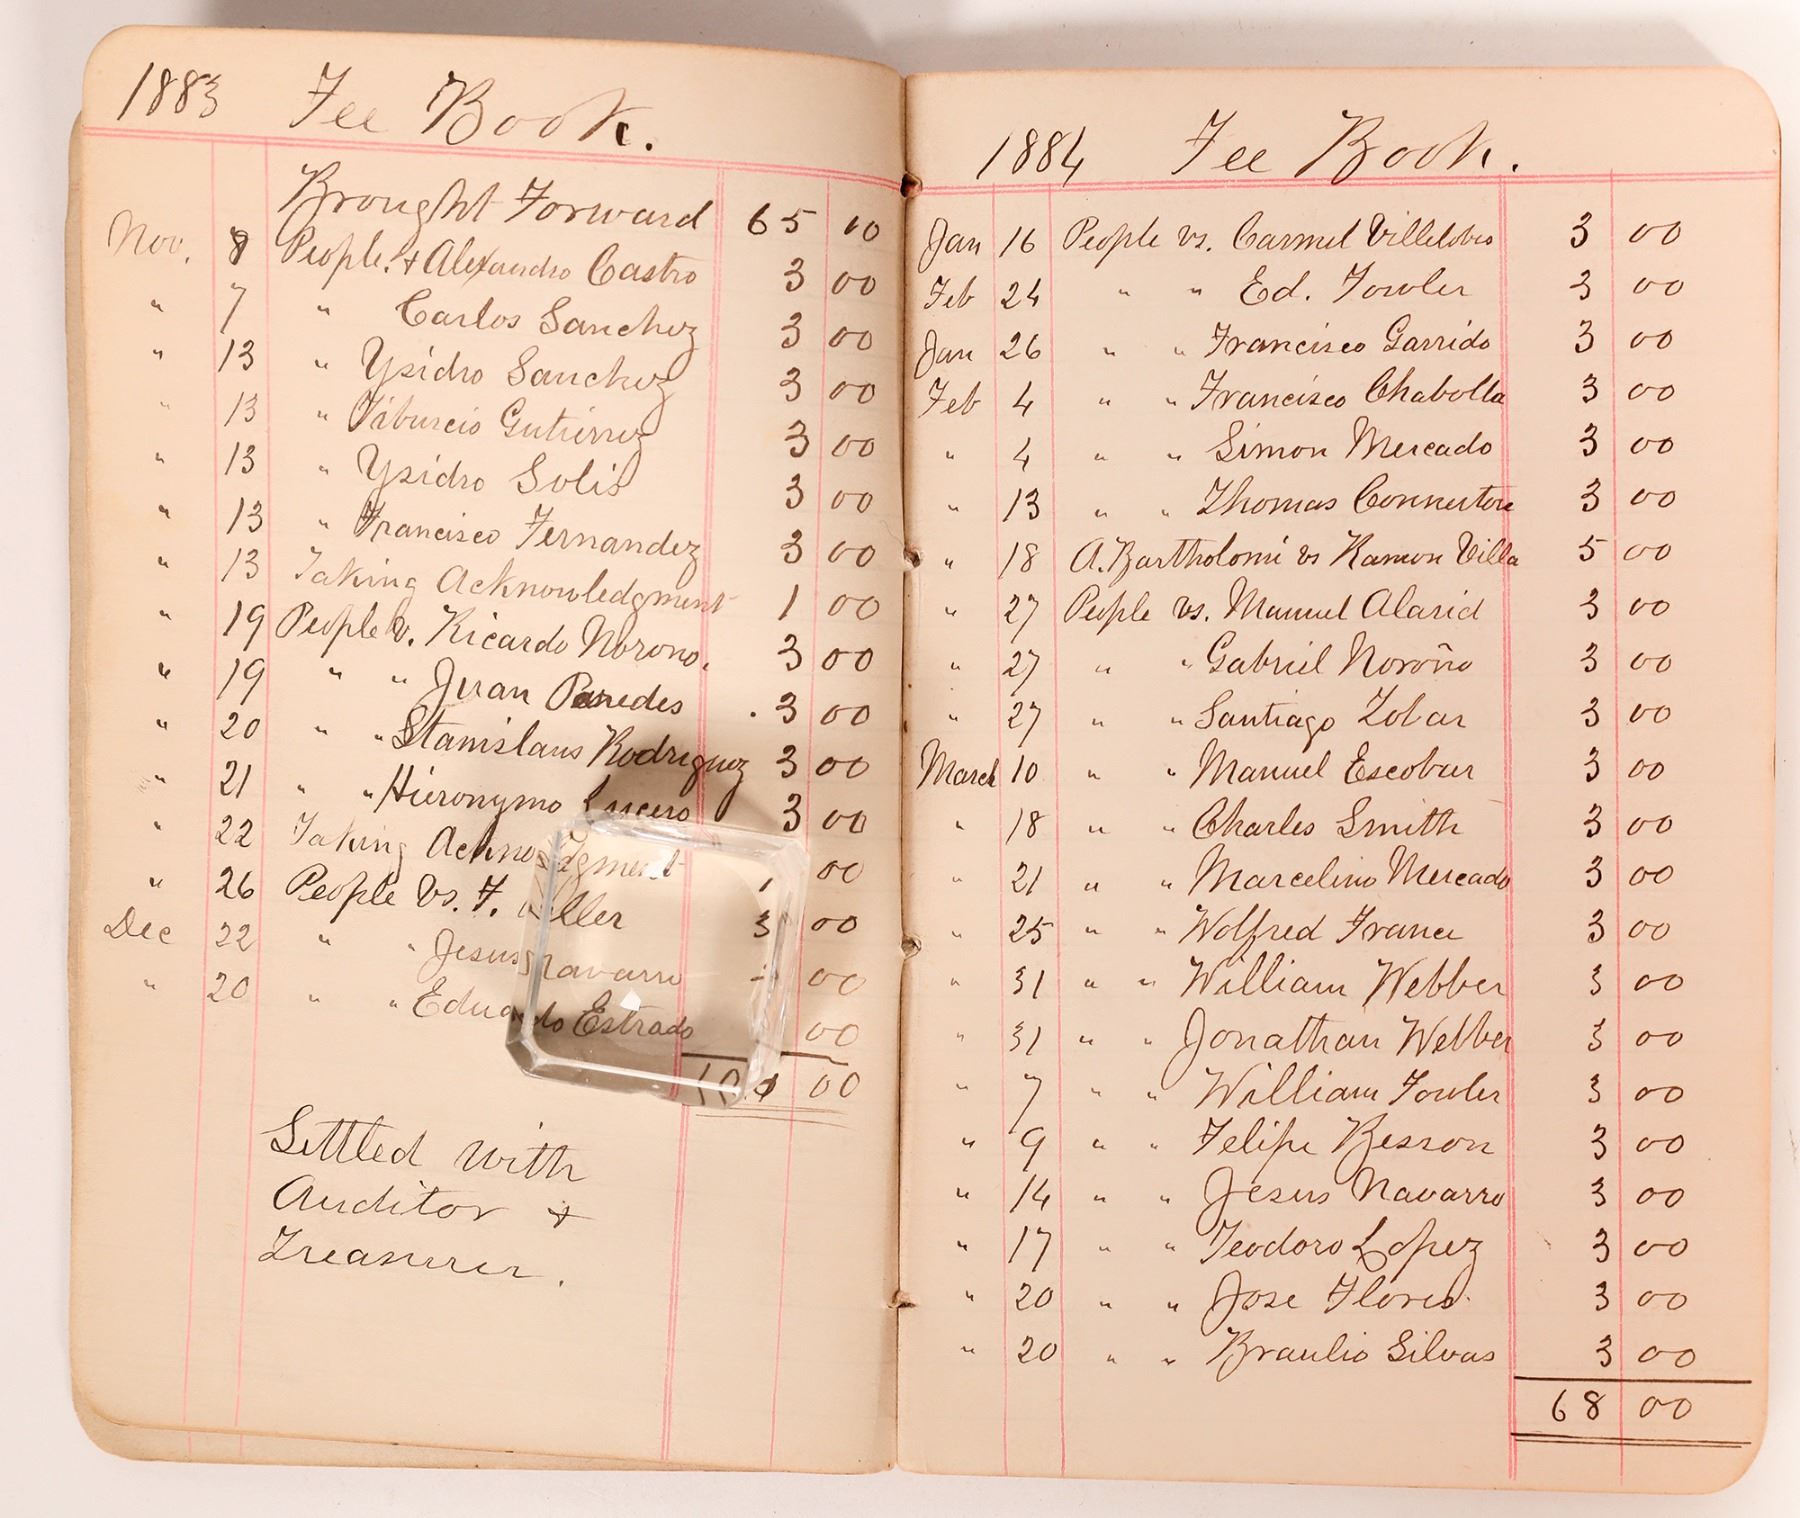 1883 Fee Book.
Brought Forward 65 00
Nov. 8 People. & Alexandro Castro 3 00
" 7 " Carlos Sanchez 3 00
" 13 " Ysidro Sanchez 3 00
" 13 " Tiburcio Gutierrez 3 00
" 13 " Ysidro Solis 3 00
" 13 " Francisco Fernandez 3 00
" 13 Taking Acknowledgment 1 00
" 19 People v. Ricardo Norono. 3 00
" 19 " " Juan Paredes 3 00
" 20 " " Stanislaus Rodriguez 3 00
" 21 " " Hieronymo Lucero 3 00
" 22 Taking 00
" 26 People Vs. F. 3 00
Dec 22 " " Jesus Navarro 00
" 20 " " Eduardo Estrado 00
00
Settled with
Auditor &
Treasurer.
1884 Fee Book.
Jan 16 People vs. Carmel Villelobos 3 00
Feb 24 " " Ed. Fowler 3 00
Jan 26 " " Francisco Garrido 3 00
Feb 4 " " Francisco Chabolla 3 00
" 4 " " Simon Mercado 3 00
" 13 " " Thomas 3 00
" 18 A. Bartholomi vs Ramon Villa 5 00
" 27 People vs. Manuel Alarid 3 00
" 27 " " Gabriel Noroño 3 00
" 27 " " Santiago Tobar 3 00
March 10 " " Manuel Escobar 3 00
" 18 " " Charles Smith 3 00
" 21 " " Marcelino Mercado 3 00
" 25 " " Wolfred France 3 00
" 31 " " William Webber 3 00
" 31 " " Jonathan Webber 3 00
" 7 " " William Fowler 3 00
" 9 " " Felipe Besson 3 00
" 14 " " Jesus Navarro 3 00
" 17 " " Teodoro Lopez 3 00
" 20 " " Jose Flores. 3 00
" 20 " " Braulio Silvas 3 00
68 00